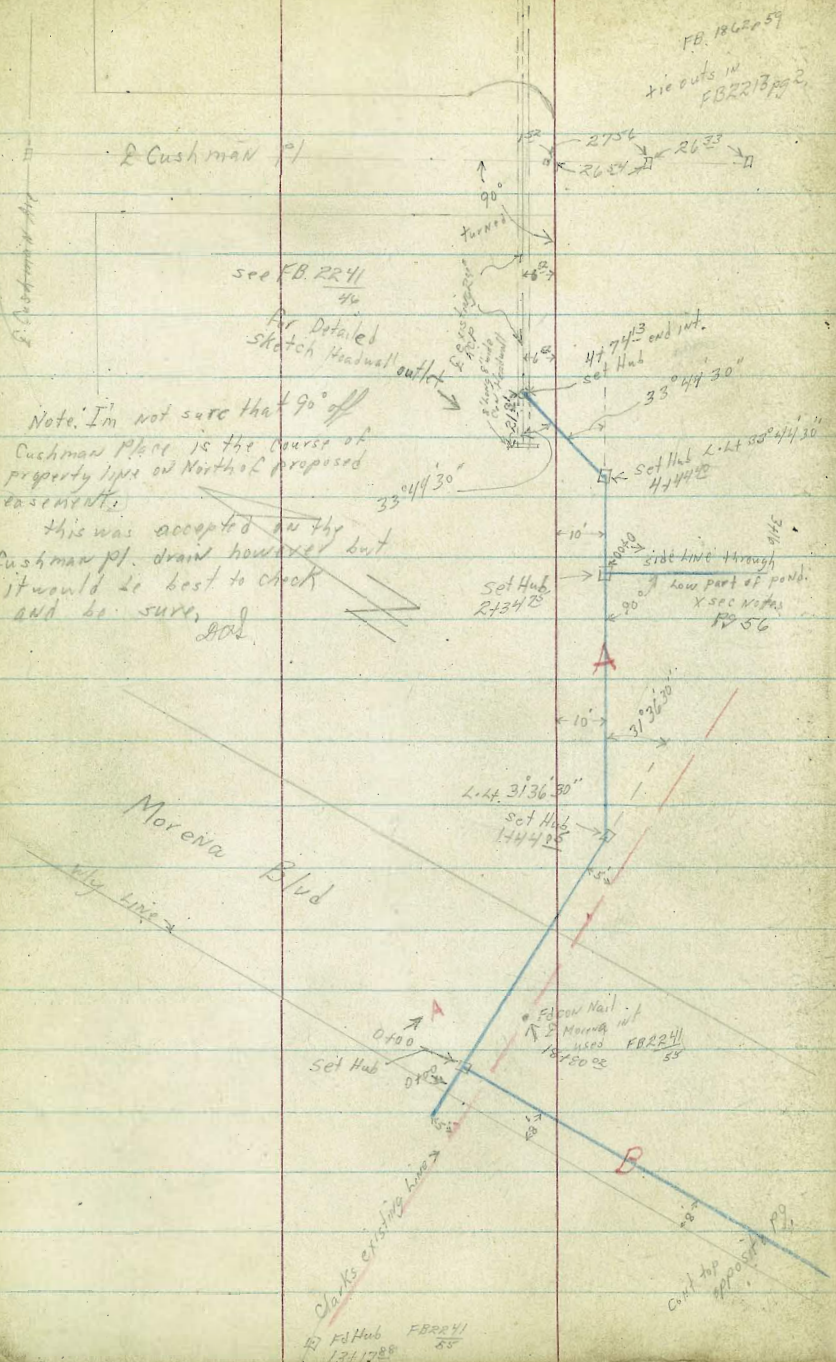 FB. 1862 p 59
tie outs in
FB2213 pg 2
℄ Cushman Pl
27 56
26 33
26 54
90°
turned
see FB. 2241
46
for Detailed
sketch Headwall outlet
6
6
4+74 13 end int.
set Hub
33°44'30"
Note: I'm not sure that 90° off
Cushman Place is the course of
property line on North of proposed
easement.
this was accepted on the
Cushman Pl. drain however but
it would be best to check
and be sure,
33°44'30"
Set Hub L.Lt 33°44'30"
4+44
10'
0+00
side LINE through
Low part of pond.
X sec Notes
Pg 56
Set Hub
2+34 75
90°
A
10'
31°36'30"
L.Lt. 31°36'30"
set Hub
1+44 85
5'
Morena Blvd
Wly LINE
A
Fd con Nail
℄ Morena int
used
18+80 02
FB2241
55
0+00
Set Hub
5'
8'
B
8'
Clarks existing Line
Cont top
opposite Pg.
Fd Hub
12+17 88
FB2241
55